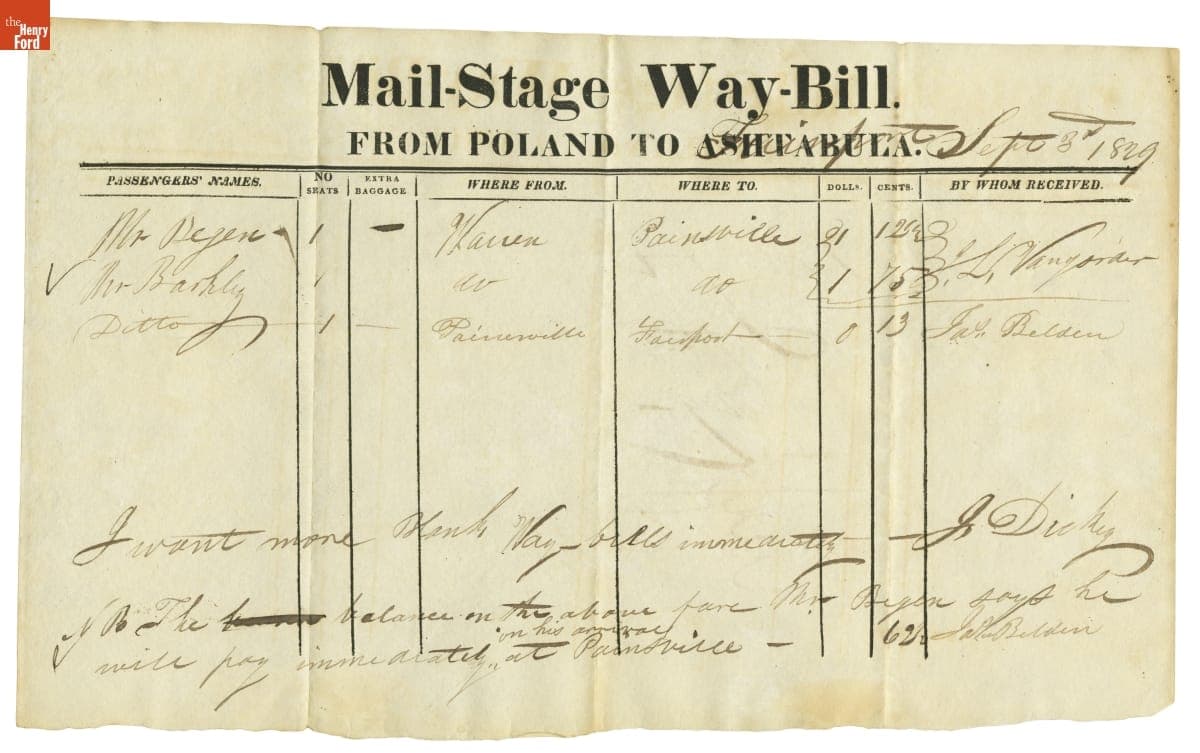 the Henry Ford
Mail-Stage Way-Bill.
FROM POLAND TO ASHTABULA. Fairport Sept 3d 1829.
PASSENGERS' NAMES. NO SEATS EXTRA BAGGAGE WHERE FROM. WHERE TO. DOLLS. CENTS. BY WHOM RECEIVED.
Mr Begen 1 - Warren Painsville 1 12½
Mr Barkley 1 do do 1 75 J. L. Vangorder
Ditto 1 — Painesville Fairport 0 13 Jas. Belden
I want more Blank Way-bills immediately — J. Dickey
NB The balance on the above fare Mr Begen says he
will pay immediately on his arrival at Painsville — 62½ Jas Belden